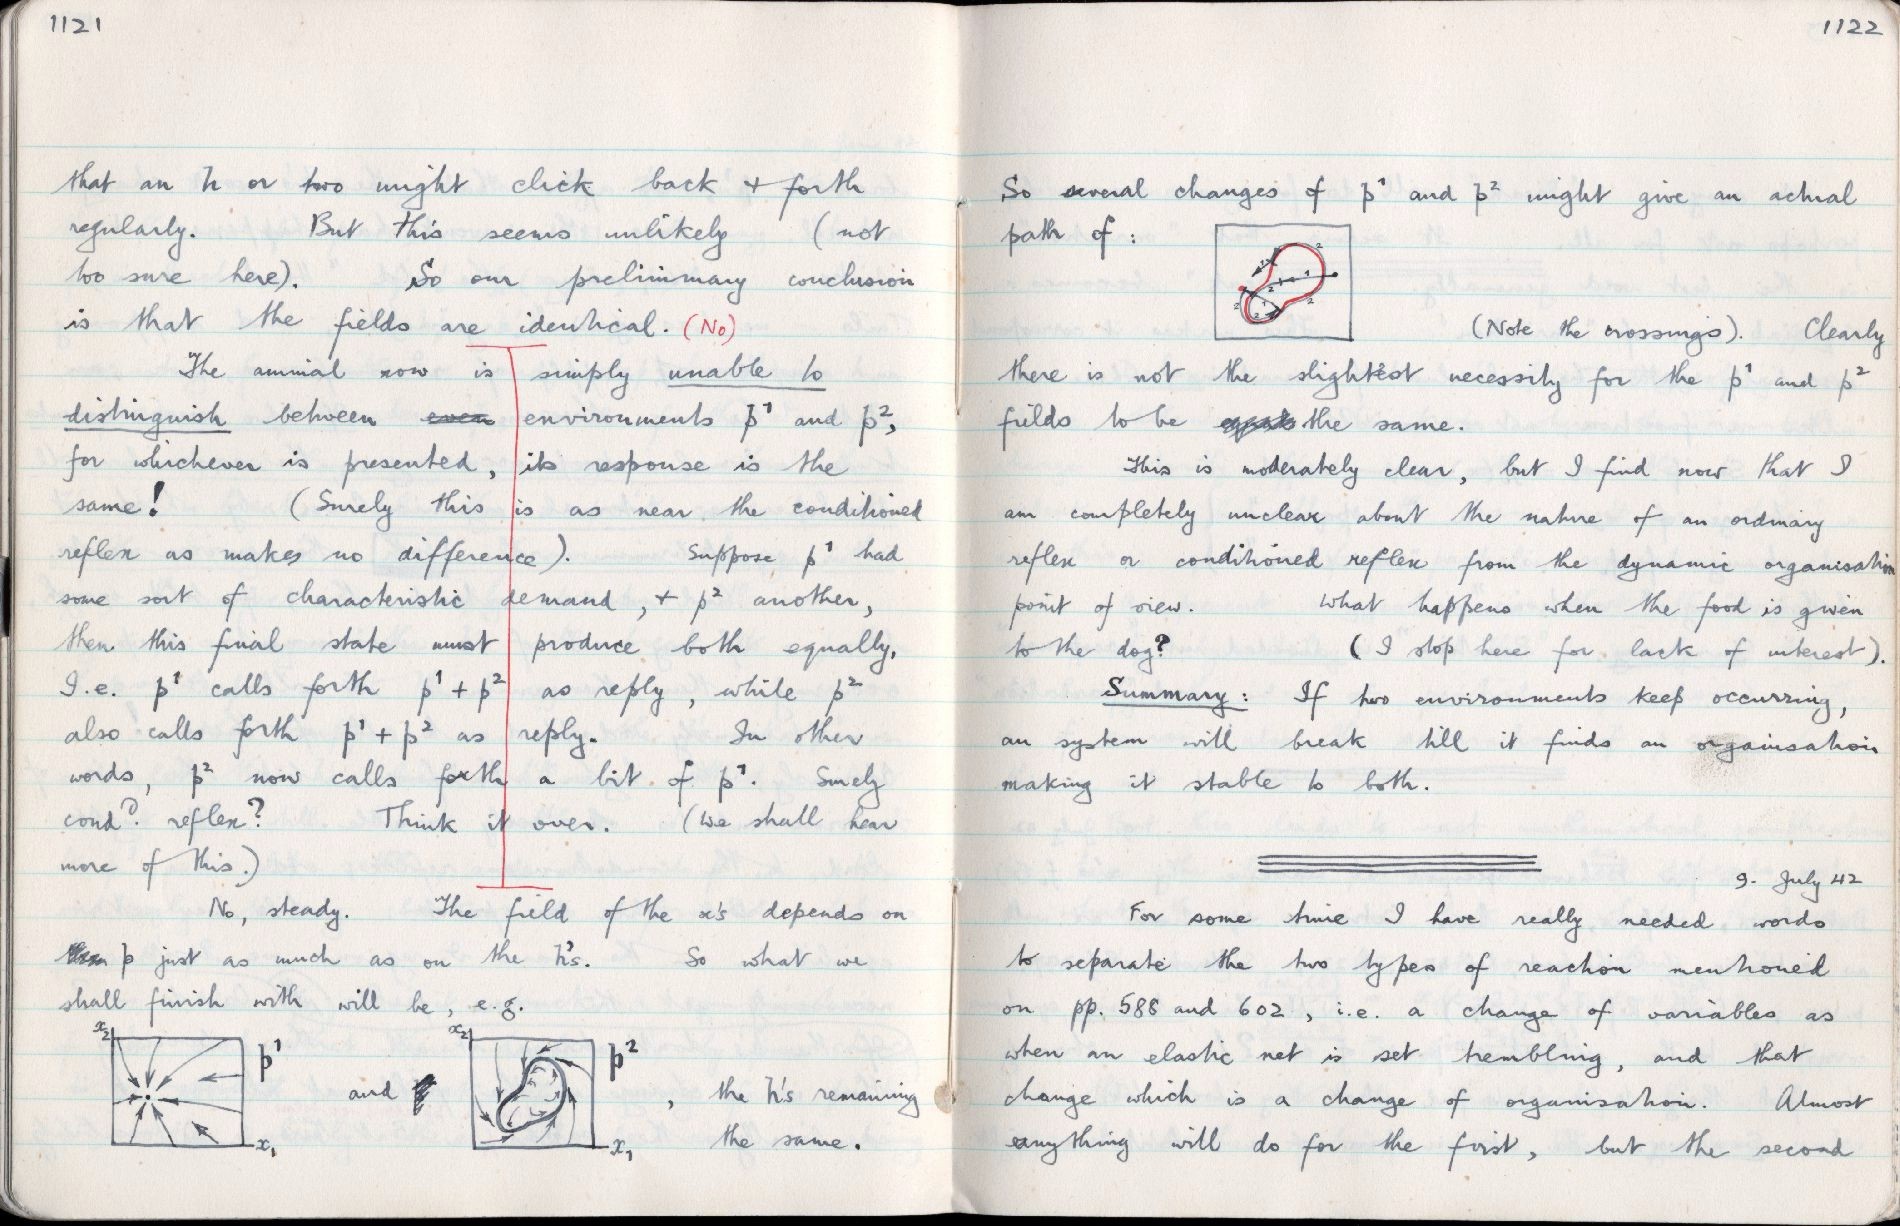 1121
that an h or two might click back & forth
regularly. But this seems unlikely (not
too sure here). So our preliminary conclusion
is that the fields are identical. (No)
The animal now is simply unable to
distinguish between even environments p¹ and p²,
for whichever is presented, its response is the
same! (Surely this is as near the conditioned
reflex as makes no difference). Suppose p¹ had
some sort of characteristic demand, & p² another,
then this final state must produce both equally.
I.e. p¹ calls forth p¹ + p² as reply, while p²
also calls forth p¹ + p² as reply. In other
words, p² now calls forth a bit of p¹. Surely
condᵈ. reflex? Think it over. (We shall hear
more of this.)
No, steady. The field of the x's depends on
p just as much as on the h's. So what we
shall finish with will be, e.g.
x₂ p¹ x₁ and x₂ p² x₁ , the h's remaining
the same.
1122
So several changes of p¹ and p² might give an actual
path of :
2 1 1 2 2 1 2 2
(Note the crossings). Clearly
there is not the slightest necessity for the p¹ and p²
fields to be the same.
This is moderately clear, but I find now that I
am completely unclear about the nature of an ordinary
reflex or conditioned reflex from the dynamic organisation
point of view. What happens when the food is given
to the dog? (I stop here for lack of interest).
Summary: If two environments keep occurring,
an system will break till it finds an organisation
making it stable to both.
9. July 42
For some time I have really needed words
to separate the two types of reaction mentioned
on pp. 588 and 602, i.e. a change of variables as
when an elastic net is set trembling, and that
change which is a change of organisation. Almost
anything will do for the first, but the second